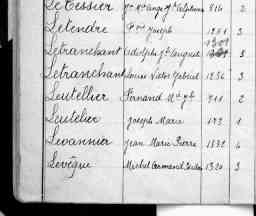 Le Tessier 814 2
Letendre Joseph 3
Letranchant Adolphe Auguste 3
Letranchant Louis Victor Gabriel 1256 3
Leutellier Fernand 911 2
Leutelier Joseph Marie 1
Levannier Jean Marie Pierre 1332 4
Levêque Michel Armand 1320 3